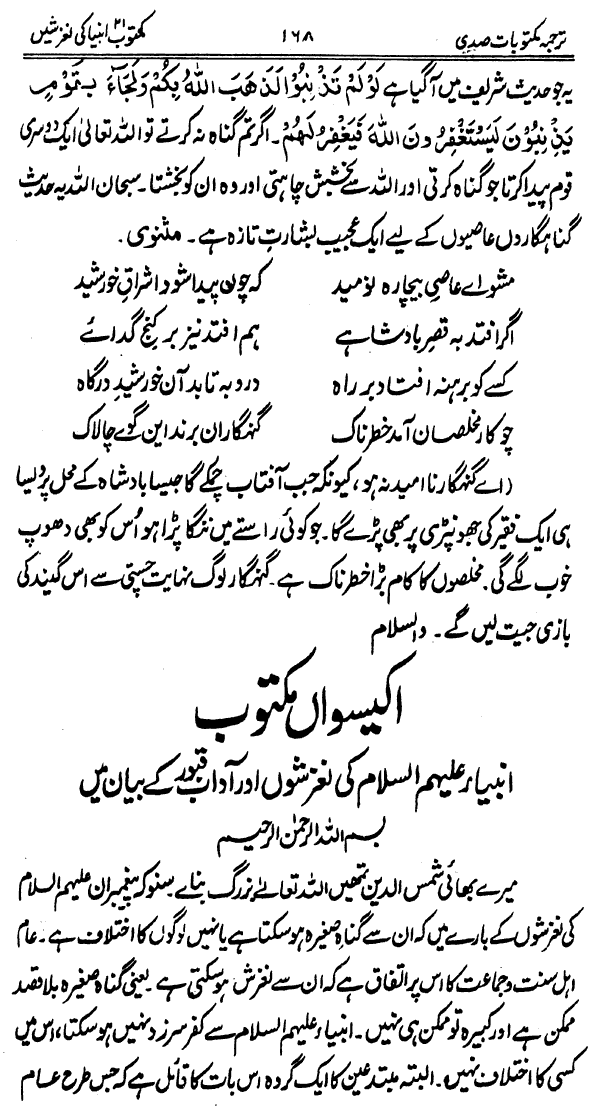 ترجمہ مکتوبات صدی ۱۶۸ مکتوب ۲۱ انبیا کی لغزشیں
یہ جو حدیث شریف میں آگیا ہے لَوْ لَمْ تَذْنِبُوْا لَذَهَبَ اللهُ بِكُمْ وَلَجَآءَ بِقَوْمٍ
يَذْنِبُوْنَ لَيَسْتَغْفِرُوْنَ اللهَ فَيَغْفِرُ لَهُمْ۔ اگر تم گناہ نہ کرتے تو اللہ تعالیٰ ایک دوسری
قوم پیدا کرتا جو گناہ کرتی اور اللہ سے بخشش چاہتی اور وہ ان کو بخشتا۔ سبحان اللہ یہ حدیث
گناہگاروں عاصیوں کے لیے ایک عجیب بشارتِ تازہ ہے۔ مثنوی۔
مشو اے عاصیِ بیچارہ نومید کہ چون پیدا شود اشراقِ خورشید
اگر افتد بہ قصرِ بادشاہے ہم افتد نیز بر کنج گدائے
کسے کو برہنہ افتاد بر راہ درو بہ تابد آن خورشیدِ درگاہ
چو کار مخلصان آمد خطرناک گنہگاران برند این گوے چالاک
(اے گنہگار نا امید نہ ہو، کیونکہ جب آفتاب چمکے گا جیسا بادشاہ کے محل پر ویسا
ہی ایک فقیر کی جھونپڑی پر بھی پڑے گا۔ جو کوئی راستے میں ننگا پڑا ہو اُس کو بھی دھوپ
خوب لگے گی۔ مخلصوں کا کام بڑا خطرناک ہے۔ گنہگار لوگ نہایت چستی سے اس گیند کی
بازی جیت لیں گے۔ والسلام
اکیسواں مکتوب
انبیاء علیہم السلام کی لغزشوں اور آداب قبور کے بیان میں
بسم اللہ الرحمٰن الرحیم
میرے بھائی شمس الدین تمھیں اللہ تعالےٰ بزرگ بنائے۔ سنو کہ پیغمبران علیہم السلام
کی لغزشوں کے بارے میں کہ ان سے گناہِ صغیرہ ہو سکتا ہے یا نہیں لوگوں کا اختلاف ہے۔ عام
اہل سنت و جماعت کا اس پر اتفاق ہے کہ ان سے لغزش ہو سکتی ہے۔ یعنی گناہ صغیرہ بلا قصد
ممکن ہے اور کبیرہ تو ممکن ہی نہیں۔ انبیاء علیہم السلام سے کفر سرزد نہیں ہو سکتا، اس میں
کسی کا اختلاف نہیں۔ البتہ مبتدعین کا ایک گروہ اس بات کا قائل ہے کہ جس طرح عام